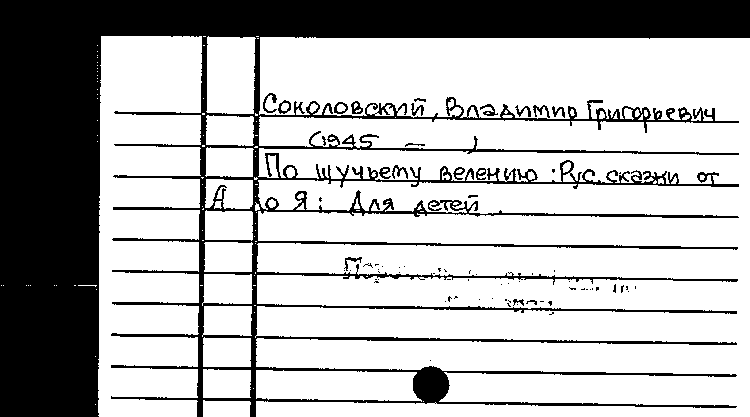 Соколовский, Владимир Григорьевич
(1945 – )
По щучьему велению : Рус. сказки от
А до Я : Для детей.